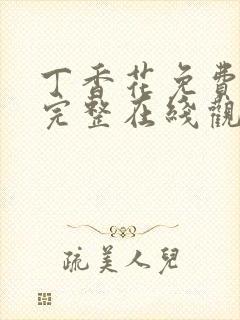 丁香花免費
完整在綫觀
疏美人兒